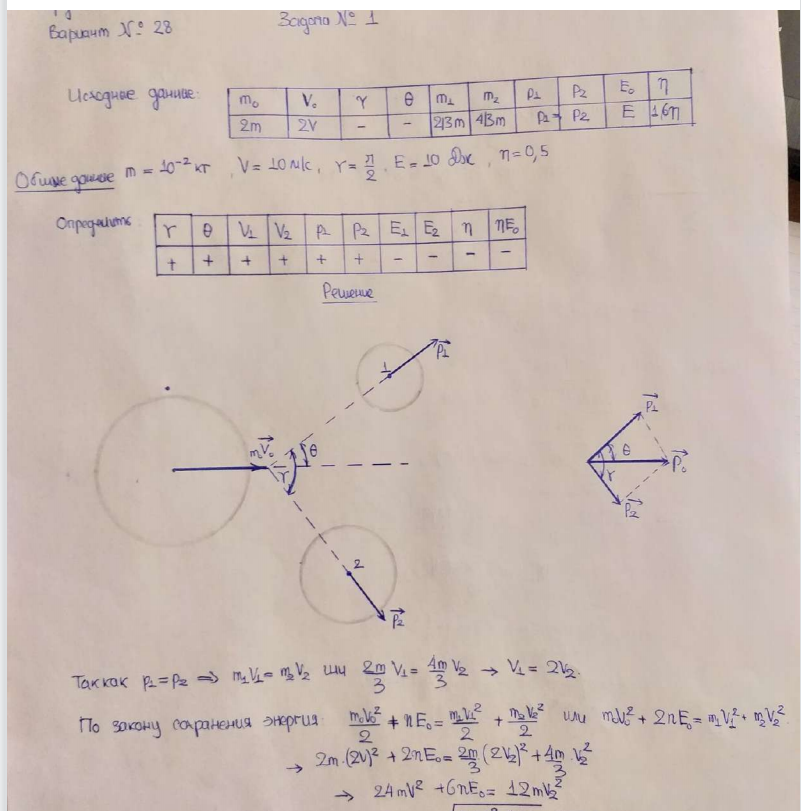 Вариант № 28
Задача № 1
Исходные данные:
m₀ V₀ γ θ m₁ m₂ p₁ p₂ E₀ η
2m 2V – – 2/3m 4/3m p₁= p₂ E 1,6η
Общие данные m = 10⁻² кг , V = 10 м/с, γ = π/2, E = 10 Дж , η = 0,5
Определить
γ θ V₁ V₂ p₁ p₂ E₁ E₂ η ηE₀
+ + + + + + – – – –
Решение
1 p₁
mV₀ θ γ
2 p₂
p₁ θ p₀ γ p₂
Так как p₁=p₂ ⇒ m₁V₁= m₂V₂ или 2m/3 V₁= 4m/3 V₂ → V₁ = 2V₂.
По закону сохранения энергия: m₀V₀²/2 + ηE₀= m₁V₁²/2 + m₂V₂²/2 или m₀V₀² + 2ηE₀= m₁V₁² + m₂V₂²
→ 2m·(2V)² + 2ηE₀= 2m/3 (2V₂)² + 4m/3 V₂²
→ 24mV² + 6ηE₀= 12mV₂²